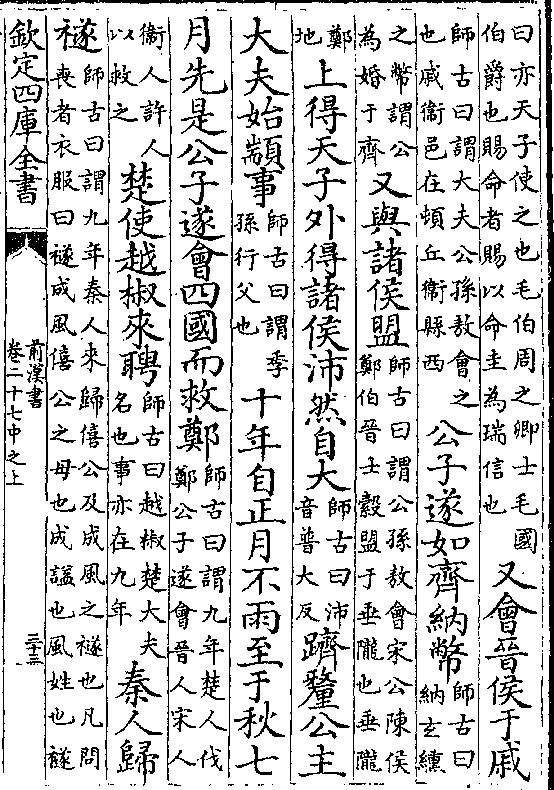 曰亦天子使之也毛伯周之卿士毛國
伯爵也賜命者賜以命圭為瑞信也
又會晉侯于戚
師古曰謂大夫公孫敖會之
也戚衛邑在頓丘衛縣西
公子遂如齊納幣
師古曰
納玄纁
之幣謂公
為婚于齊
又與諸侯盟
師古曰謂公孫敖會宋公陳侯
鄭伯晉士縠盟于垂隴也垂隴
鄭
地
上得天子外得諸侯沛然自大
師古曰沛
音普大反
躋釐公主
大夫始顓事
師古曰謂季
孫行父也
十年自正月不雨至于秋七
月先是公子遂會四國而救鄭
師古曰謂九年楚人伐
鄭公子遂會晉人宋人
衛人許人
以救之
楚使越椒來聘
師古曰越椒楚大夫
名也事亦在九年
秦人歸
襚
師古曰謂九年秦人來歸僖公及成風之襚也凡問
喪者衣服曰襚成風僖公之母也成諡也風姓也襚
欽定四庫全書
前漢書
卷二十七中之上
三十三